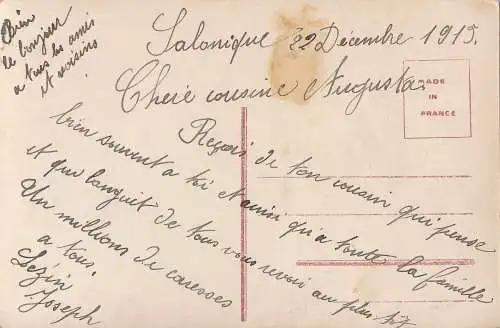 Salonique 22 Décembre 1915.
Cherè cousine Augusta.
Reçois de ton cousin qui pense
bien souvent a toi et ainsi qu'a toute la famille
et que languit de tous vous revoir au plus tôt
Un millions de caresses
a tous.
Lezin
Joseph
Bien
le bonjour
a tous les amis
et voisins
MADE
IN
FRANCE